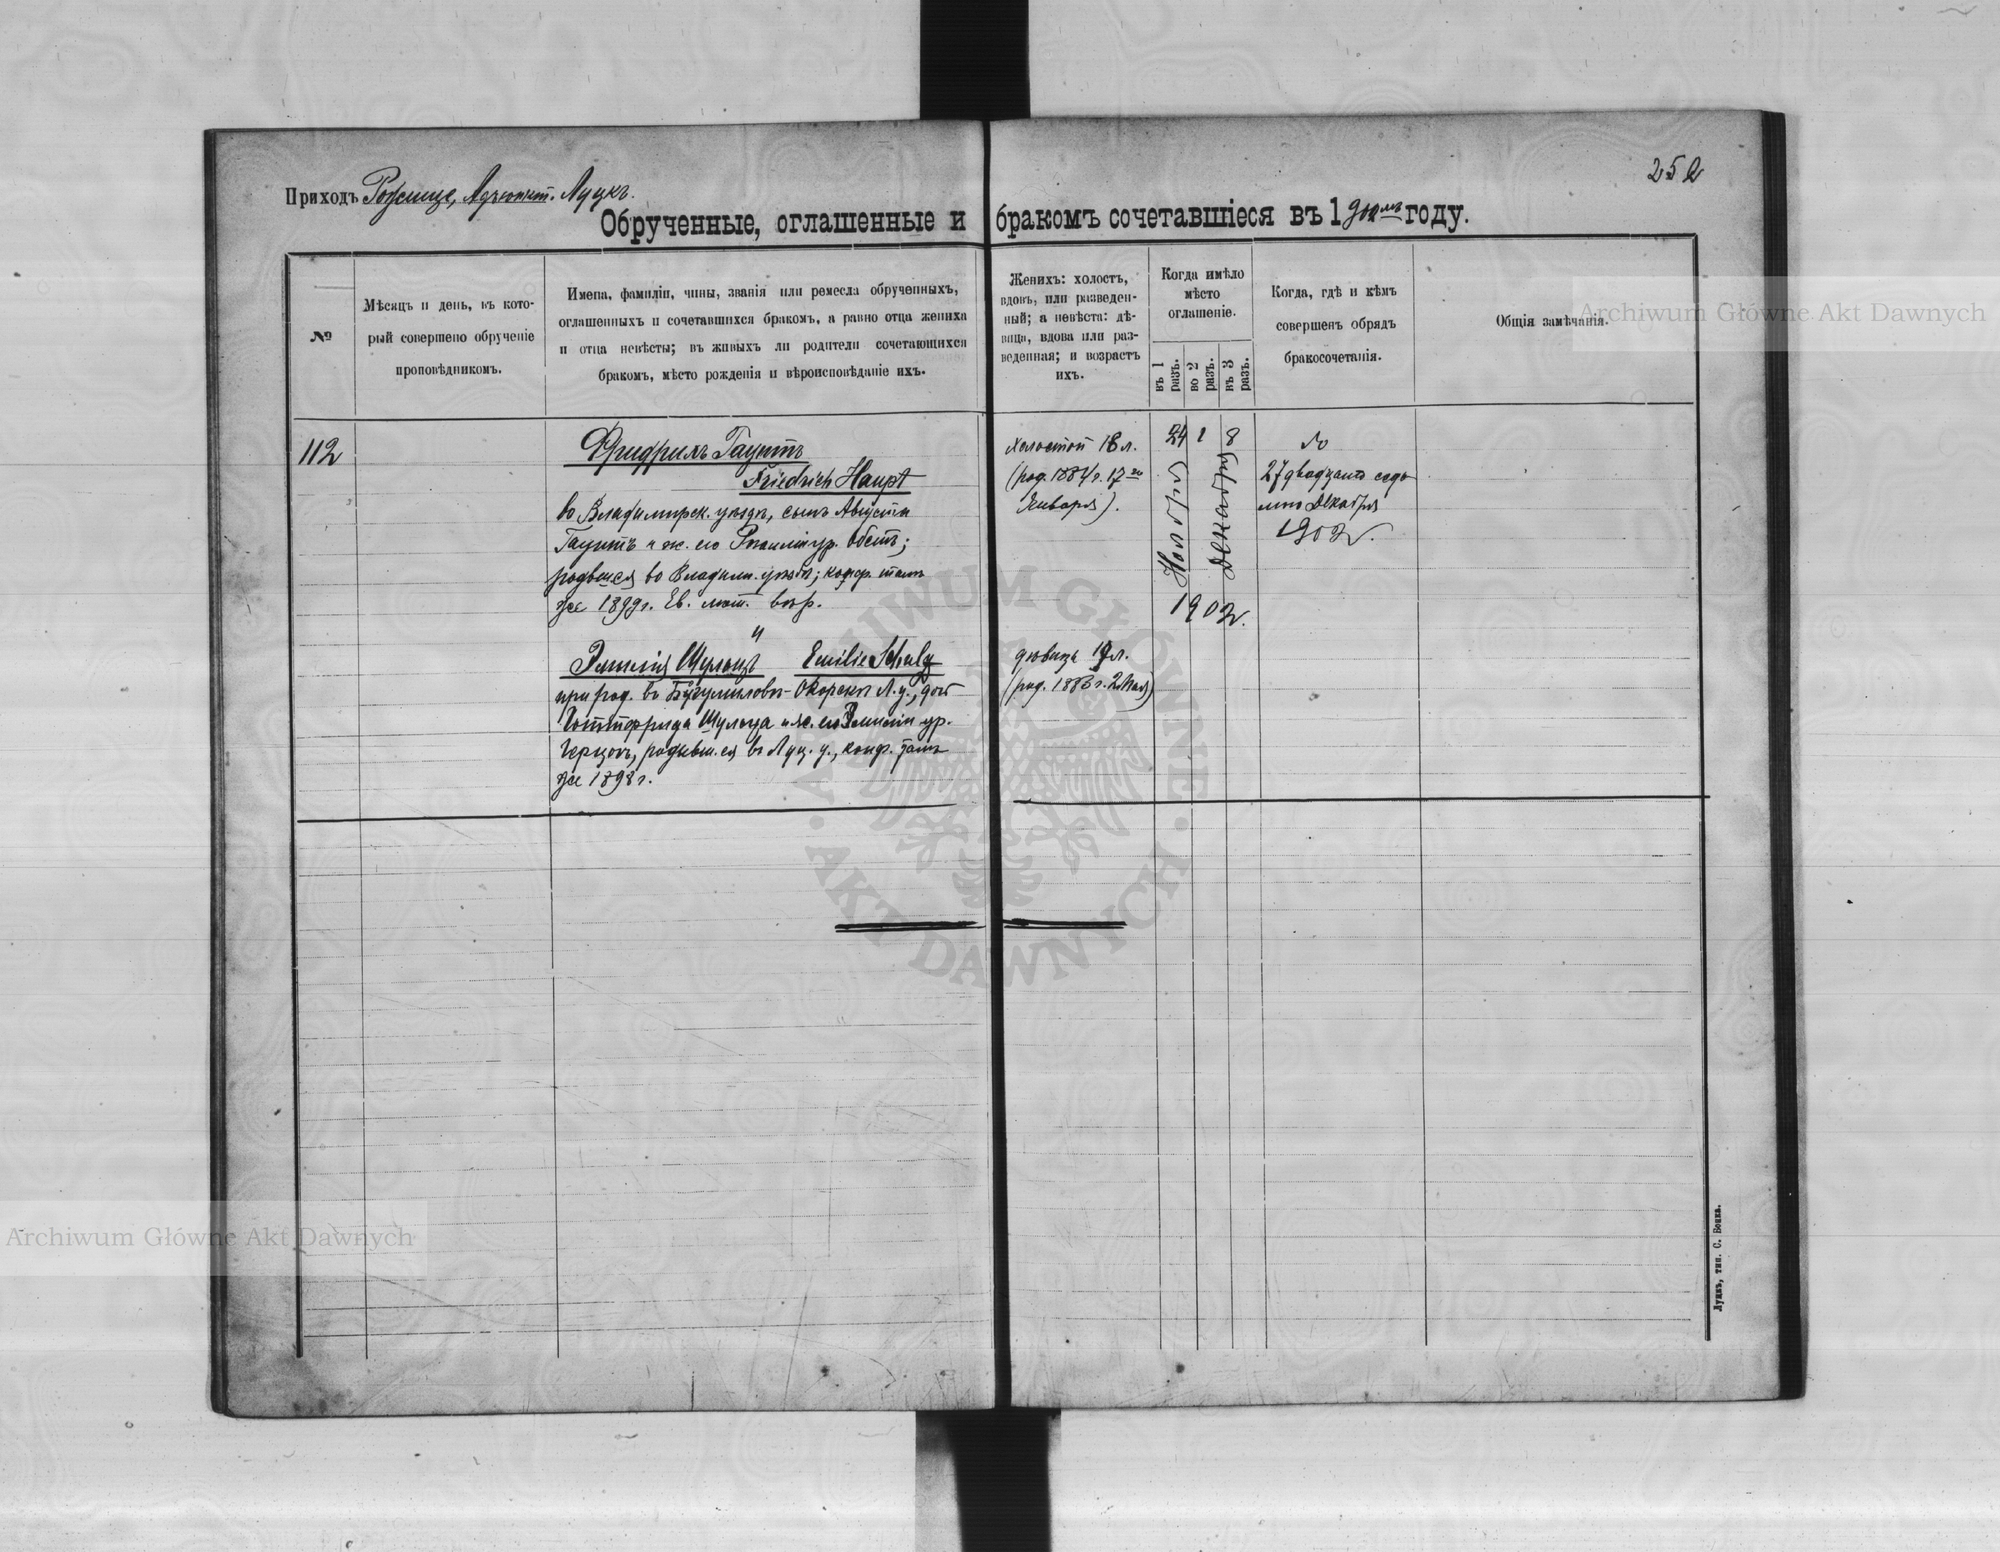 252
Приходъ Рожище, Адъюнкт. Луцкъ.
Обрученные, оглашенные и бракомъ сочетавшіеся въ 1902мъ году.
№
Мѣсяцъ и день, въ кото-
рый совершено обрученіе
проповѣдникомъ.
Имена, фамиліи, чины, званія или ремесла обрученныхъ,
оглашенныхъ и сочетавшихся бракомъ, а равно отца жениха
и отца невѣсты; въ живыхъ ли родители сочетающихся
бракомъ, мѣсто рожденія и вѣроисповѣданіе ихъ.
Женихъ: холостъ,
вдовъ, или разведен-
ный; а невѣста: дѣ-
вица, вдова или раз-
веденная; и возрастъ
ихъ.
Когда имѣло
мѣсто
оглашеніе.
въ 1 разъ.
во 2 разъ.
въ 3 разъ.
Когда, гдѣ и кѣмъ
совершенъ обрядъ
бракосочетанія.
Общія замѣчанія.
112
Фридрихъ Гауптъ
Friedrich Haupt
во Владимирск. уѣздѣ, сынъ Августа
Гауптъ и ж. его ур.
родвшся во Владим. уѣздѣ; конф. тамъ
же 1899 г. Ев. лют. вѣр.
и
Эмилія Шульцъ Emilie Schulz
при род. въ Л. у., дочь
Готтфрида Шульца и ж. его Эмиліи ур.
родивш.ся въ Луц. у., конф. тамъ
же 1898 г.
Холостой 18 л.
(род. 1884 г. 17го
Января).
дѣвица 19 л.
(род. 1883 г. 2 Мая)
24 1 8
Ноября
Декабря
1902.
27 двадцать седь
мого Декабря
1902.
Луцкъ, тип. С. Бокка.
Archiwum Główne Akt Dawnych
Archiwum Główne Akt Dawnych
ARCHIWUM GŁÓWNE · AKT DAWNYCH ·